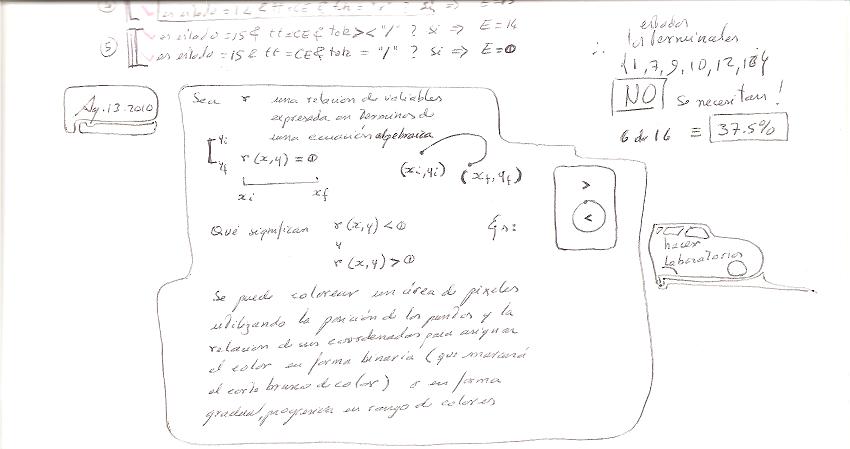 ⑤ en estado = 15 & tt = CE & tok >< "/" ? si => E = 14
en estado = 15 & tt = CE & tok = "/" ? si => E = 0
∴ estados
los terminales
{1, 7, 9, 10, 12, 13}
NO se necesitan!
6 de 16 ≡ 37.5%
Ag. 13. 2010
Sea r una relacion de variables
expresada en terminos de
una ecuación algebraica
yi
yf r(x,y) = 0
xi xf
(xi, yi) (xf, yf)
>
<
Qué significan r(x,y) < 0
y
r(x,y) > 0
hacer
Laboratorios
Se puede colorear un área de pixeles
utilizando la posición de los puntos y la
relacion de sus coordenadas para asignar
el color en forma binaria (que marcará
el corte brusco de color) o en forma
gradual, progresiva en rango de colores